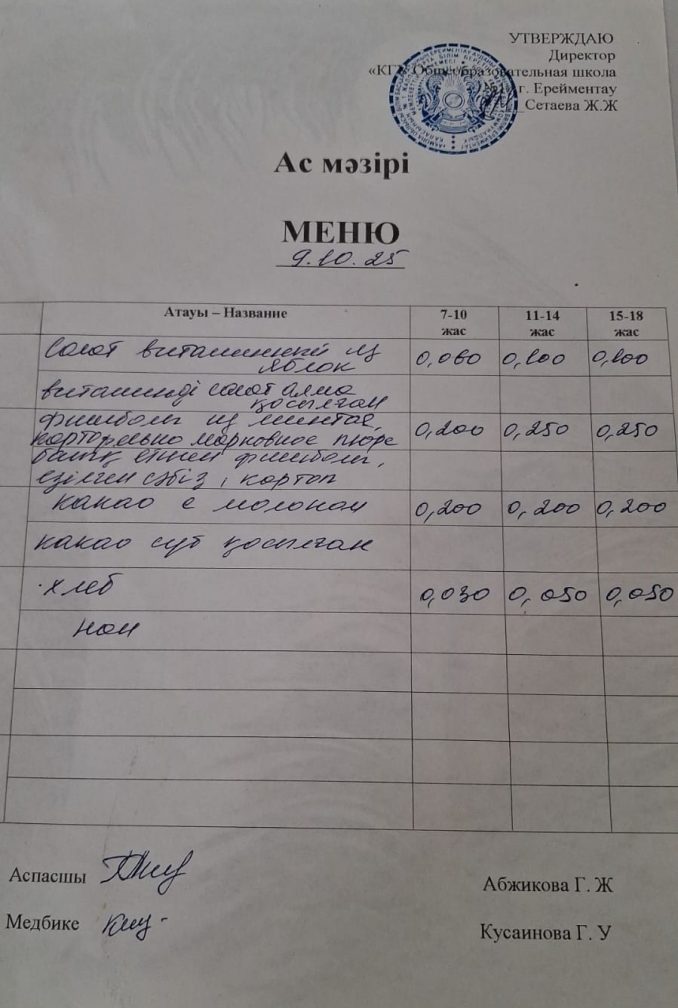 УТВЕРЖДАЮ
Директор
«КГУ Общеобразовательная школа
г. Ерейментау
Сетаева Ж.Ж
Ас мәзірі
МЕНЮ
9.10.25
Атауы – Название 7-10 жас 11-14 жас 15-18 жас
Салат витаминный из яблок 0,060 0,100 0,100
витаминді салат алма қосылған
фишболы из минтая,
картофельно морковное пюре 0,200 0,250 0,250
балық етінен фишболы,
езілген сәбіз, картоп
какао с молоком 0,200 0,200 0,200
какао сүт қосылған
хлеб 0,030 0,050 0,050
нан
Аспасшы Абжикова Г. Ж
Медбике Кусаинова Г. У